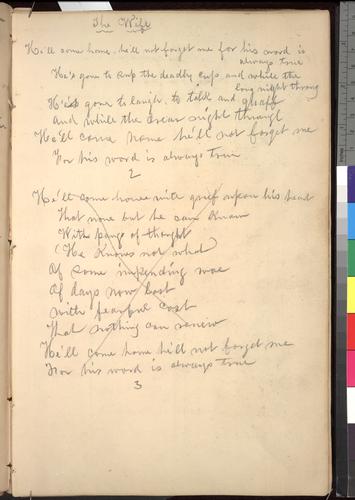 The Wife
He'll come home, he'll not forget me for his word is
always true
He's gone to sup the deadly cup, and while the
long night through
He's gone to laugh, to talk and quaff
And while the drear night through
He'll come home he'll not forget me
For his word is always true
2
He'll come home with grief upon his heart
That none but he can know
With pang of thought
(He knows not what)
Of some impending woe
Of days now lost
with fearful cost
That nothing can renew
He'll come home he'll not forget me
For his word is always true
3